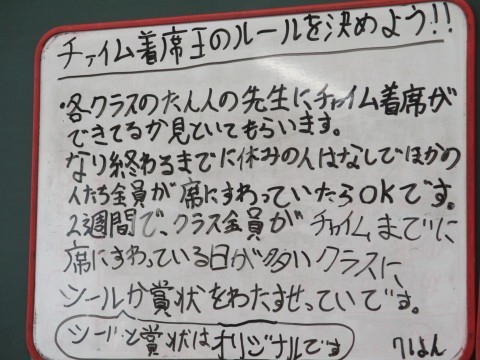 チャイム着席王のルールを決めよう!!
・各クラスのたん人の先生に、チャイム着席が
できてるか見ていてもらいます。
なり終わるまでに休みの人はなしでほかの
人たち全員が席にすわっていたらOKです。
2週間で、クラス全員がチャイムまでに
席にすわっている日が多いクラスに、
シールか賞状をわたすせっていです。
シールと賞状はオリジナルです